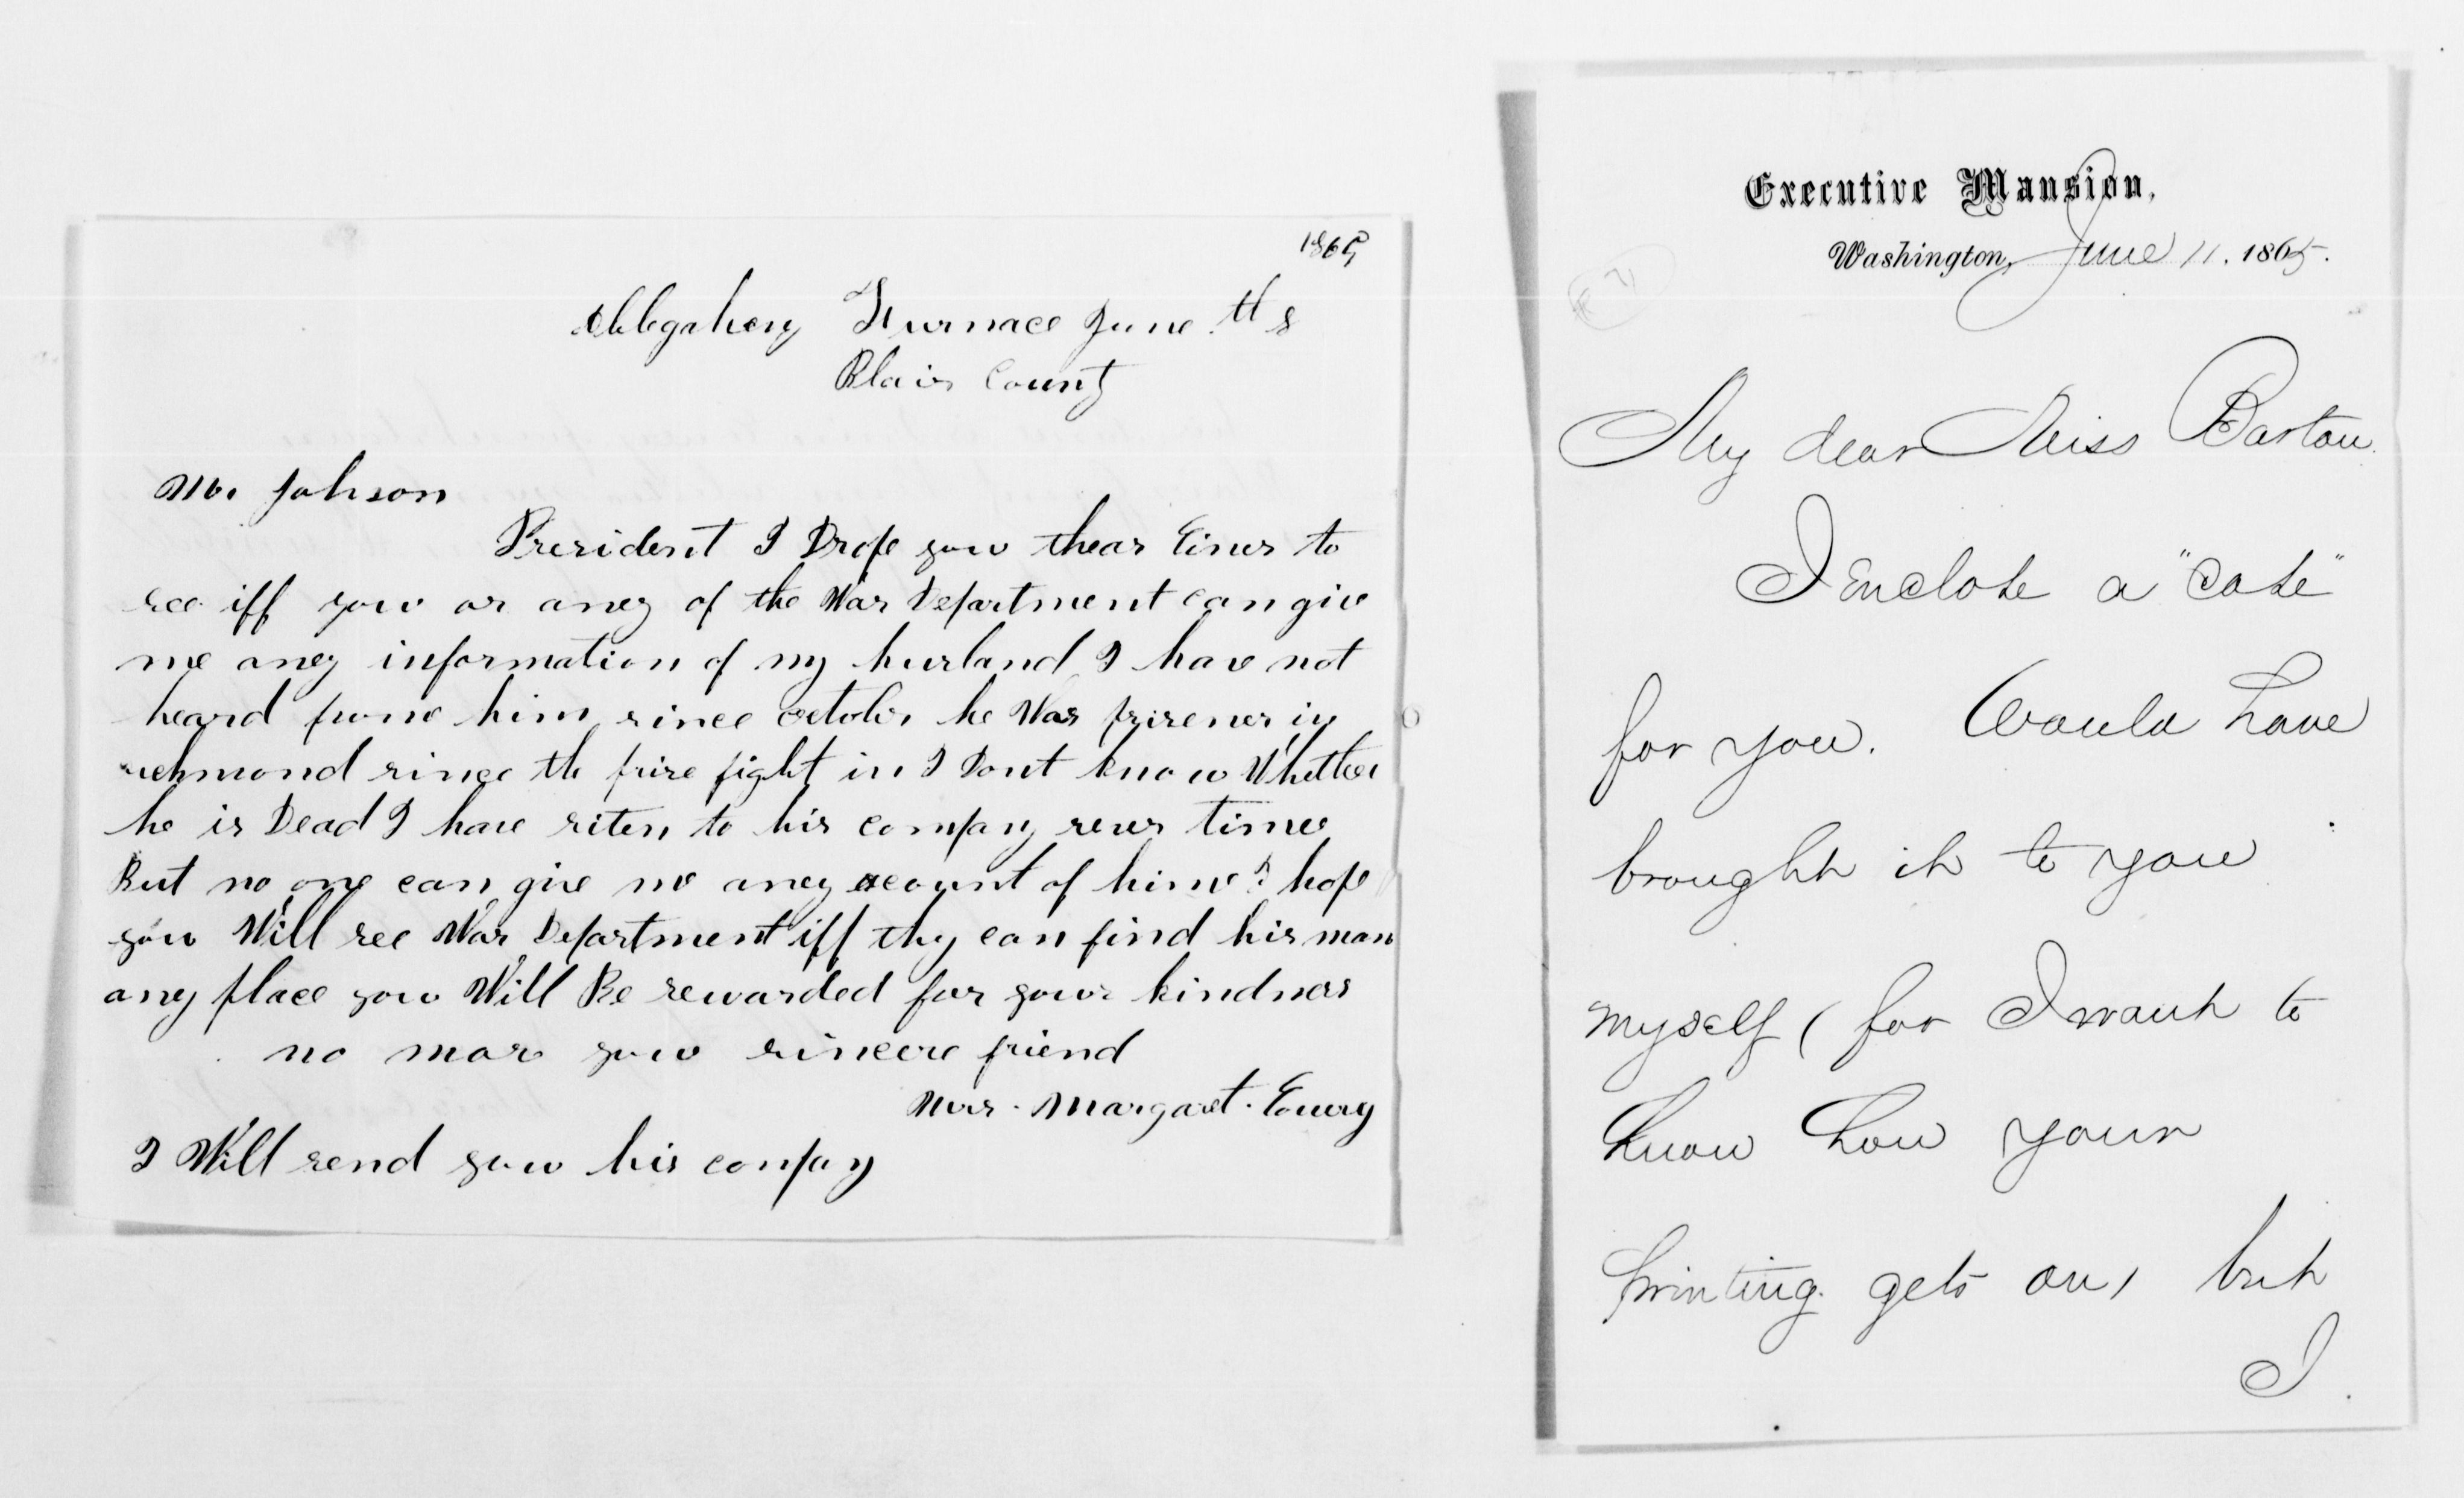 1865
Allegaheny Furnace June th 8
Blair County
Mr. Johson
President I Drope yow thears lines to
see iff yow or aney of the War Department can give
me aney information of my husband I have not
heard frome him since october he Was prisener in
richmond since th frise fight in I Dont know Whether
he is Dead I have riten to his compay severs times
But no one can give me aney account of hime I hope
yow Will see War Department iff thy can find his man
any place yow Will Be rewarded for yowr kindness
no mor yow sincere friend
Mrs. Margaret.
I Will send yow his conpay
Executive Mansion,
Washington, June 11. 1865.
My dear Miss Barton.
I enclose a "case"
for you. Would have
brought it to you
myself, for I want to
know how your
printing gets on, but
I.